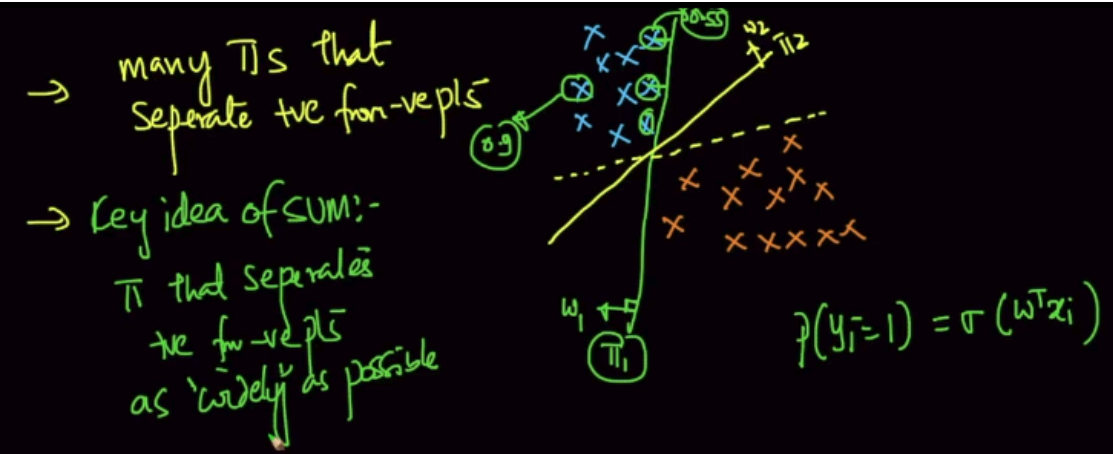 → many πs that
seperate +ve from -ve pts
→ Key idea of SVM:-
π that seperates
+ve fm -ve pts
as 'widely' as possible
0.55
0.9
w2
π2
w1
π1
P(yi=1) = σ(wᵀxi)